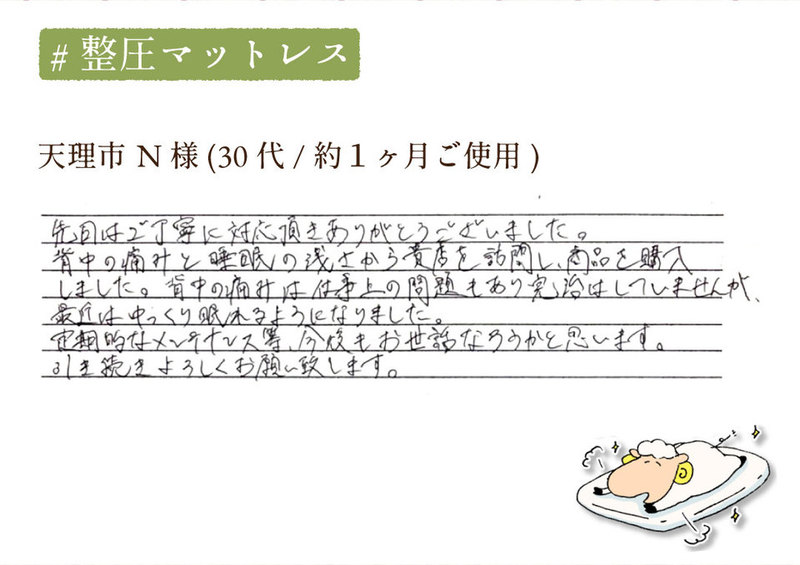 # 整圧マットレス
天理市 N 様 (30 代 / 約１ヶ月ご使用 )
先日はご丁寧に対応頂きありがとうございました。
背中の痛みと睡眠の浅さから貴店を訪問し、商品を購入
しました。背中の痛みは仕事上の問題もあり完治はしていませんが、
最近はゆっくり眠れるようになりました。
定期的なメンテナンス等、今後もお世話なろうかと思います。
引き続きよろしくお願い致します。